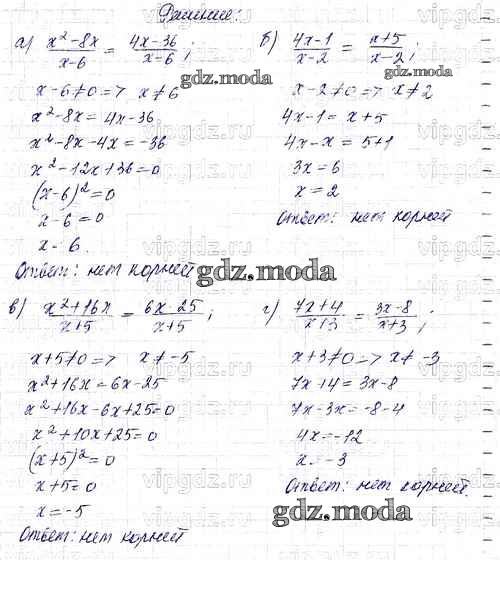 Решение:
а) x²-8x/x-6 = 4x-36/x-6;
x-6≠0=> x≠6
x²-8x=4x-36
x²-8x-4x=-36
x²-12x+36=0
(x-6)²=0
x-6=0
x=6.
Ответ: нет корней
б) 4x-1/x-2 = x+5/x-2;
x-2≠0=> x≠2
4x-1=x+5
4x-x=5+1
3x=6
x=2
Ответ: нет корней
gdz.moda
gdz.moda
в) x²+16x/x+5 = 6x-25/x+5;
x+5≠0=> x≠-5
x²+16x=6x-25
x²+16x-6x+25=0
x²+10x+25=0
(x+5)²=0
x+5=0
x=-5
Ответ: нет корней
г) 7x+4/x+3 = 3x-8/x+3;
x+3≠0=> x≠-3
7x+4=3x-8
7x-3x=-8-4
4x=-12
x=-3
Ответ: нет корней.
gdz.moda
vipgdz